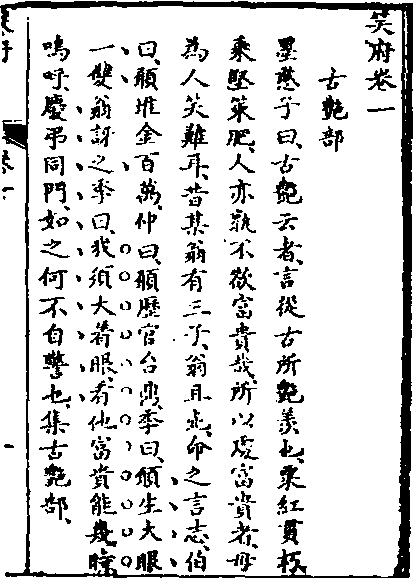 笑府卷一
古艷部
墨憨子曰、古艷云者、言從古所艷羨也、粟紅貫朽、
乘堅策肥、人亦孰不欲富貴哉、所以處富貴者、毋
為人笑難耳、昔某翁有三子、翁且死、命之言志、伯
曰、願堆金百萬、仲曰、願歷官台鼎、季曰、願生大眼
一雙、翁訝之、季曰、我須大著眼、看他富貴能幾時
嗚呼、慶弔同門、如之何不自警也、集古艷部、